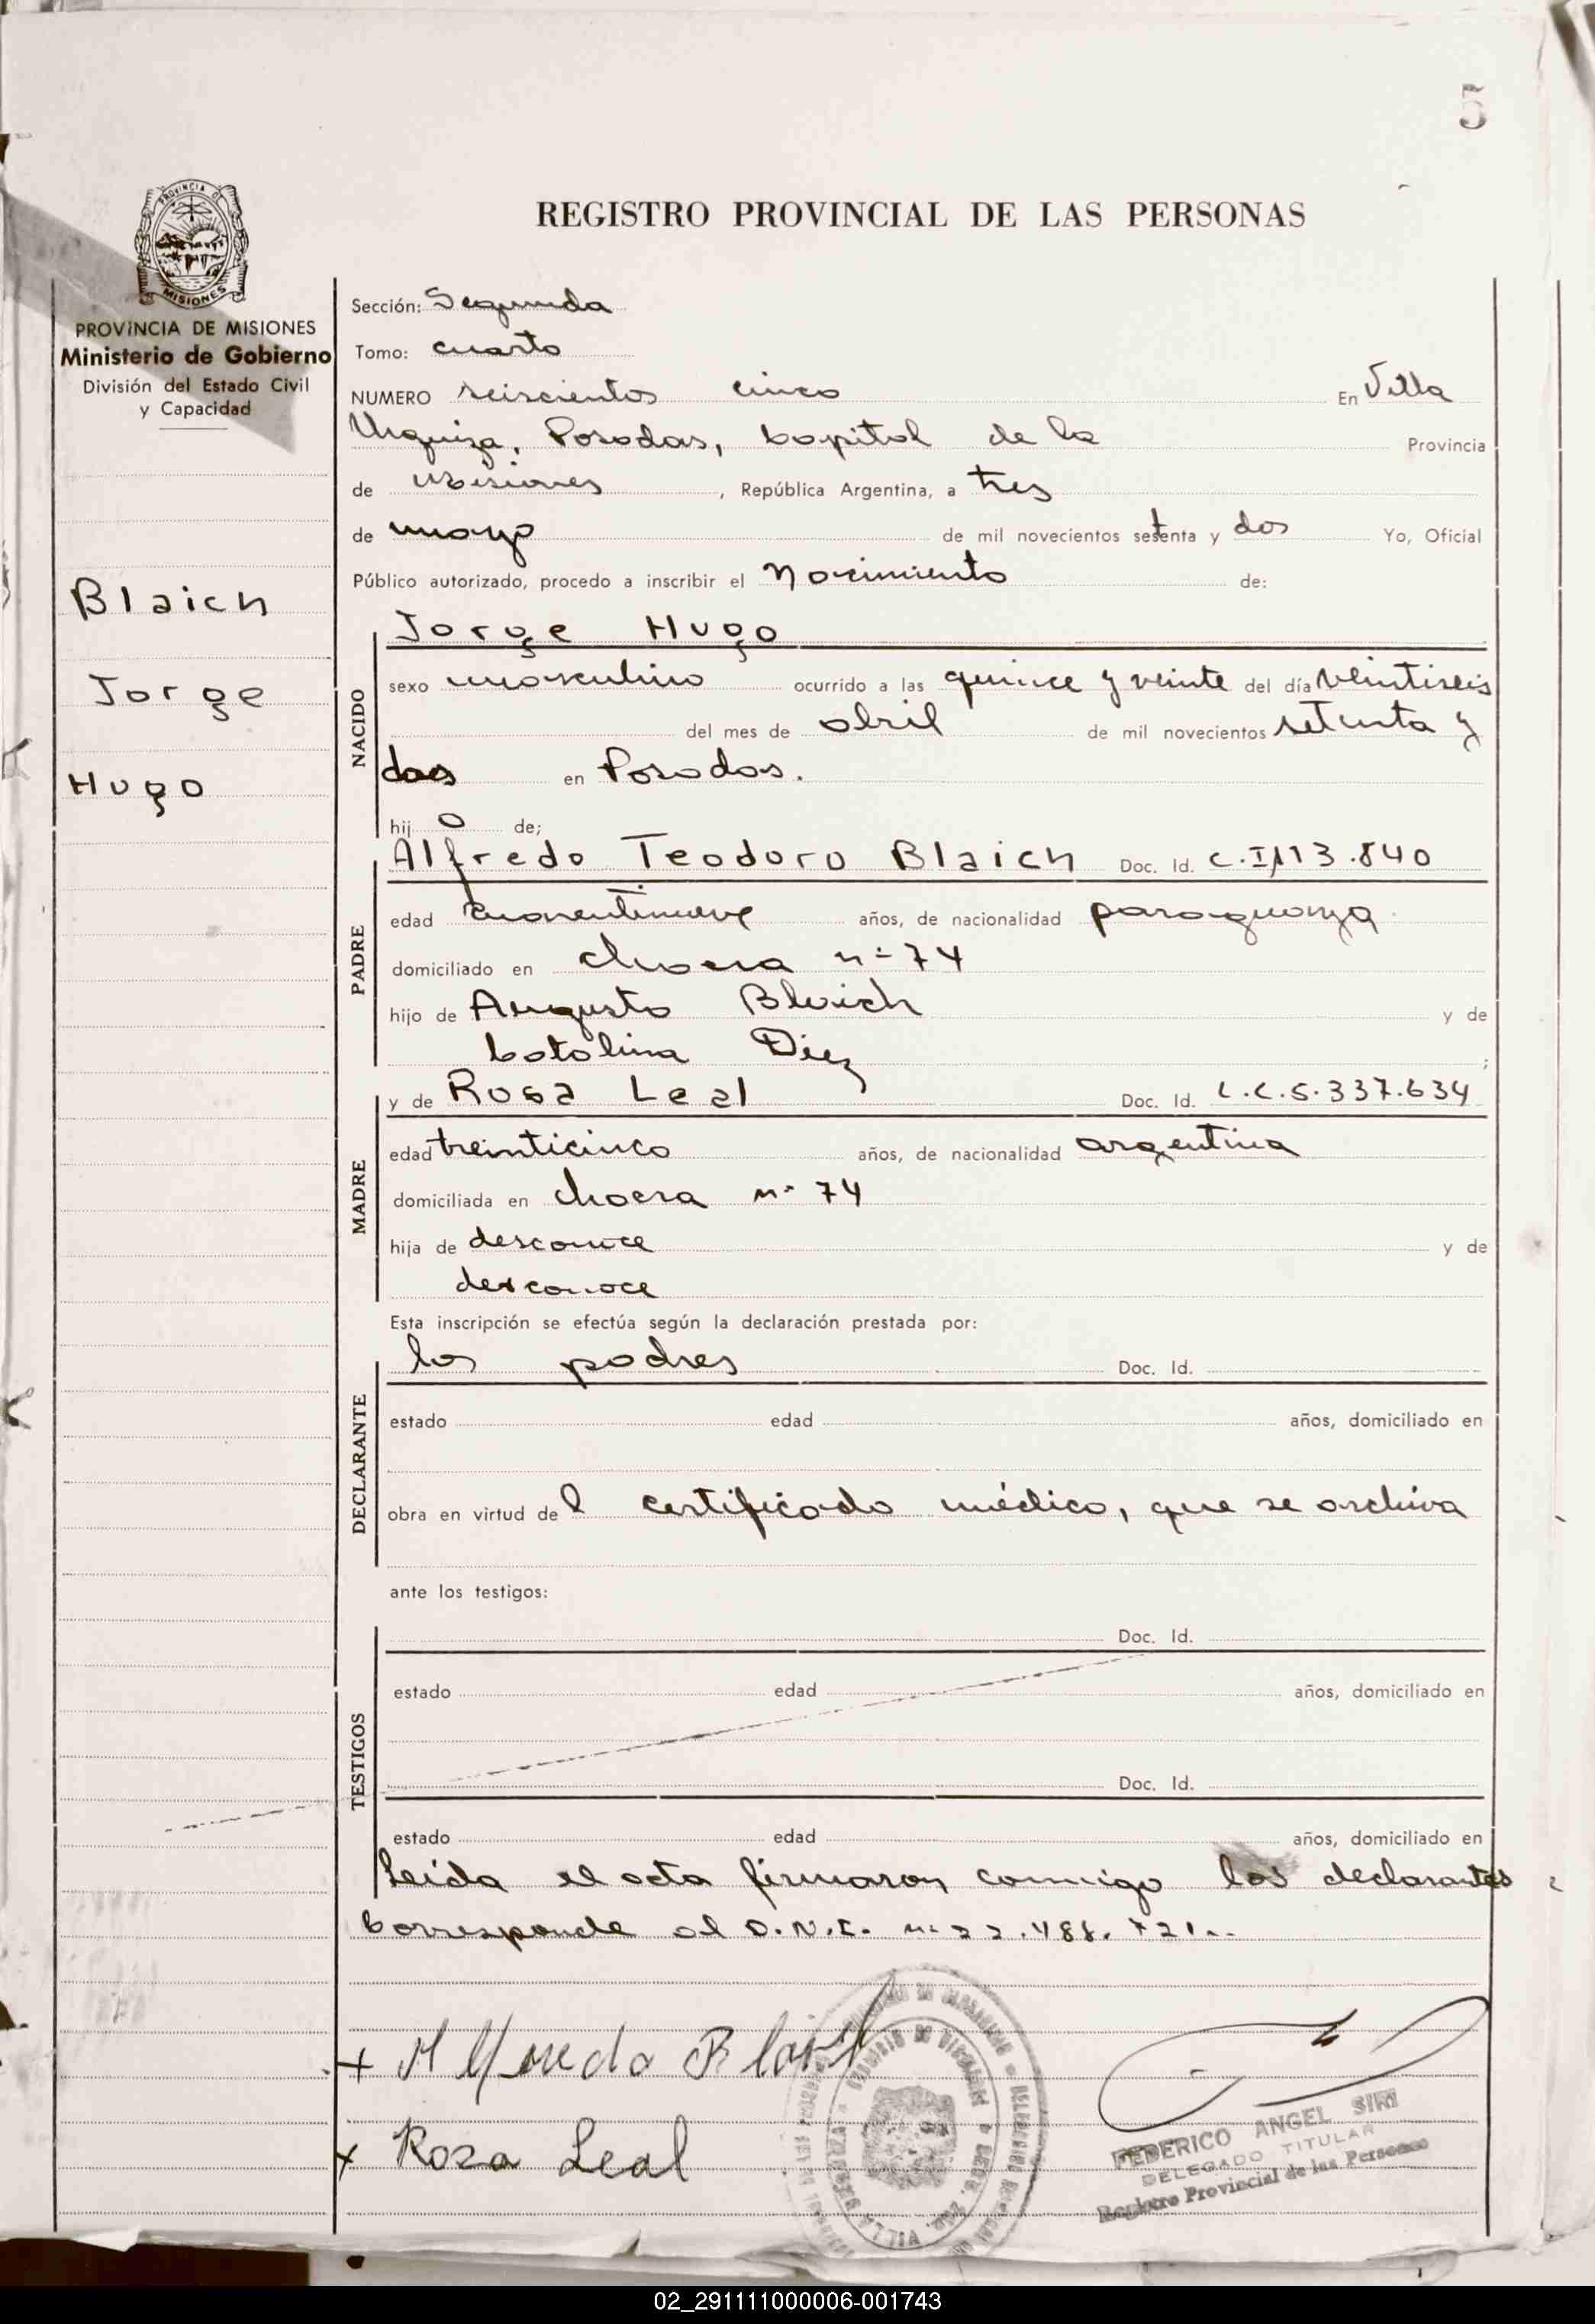 5
PROVINCIA DE MISIONES
Ministerio de Gobierno
División del Estado Civil
y Capacidad
Blaich
Jorge
Hugo
REGISTRO PROVINCIAL DE LAS PERSONAS
Sección: Segunda
Tomo: cuarto
NUMERO seiscientos cinco En Villa
Urquiza, Posadas, Capital de la Provincia
de Misiones, República Argentina, a tres
de mayo de mil novecientos setenta y dos Yo, Oficial
Público autorizado, procedo a inscribir el Nacimiento de:
NACIDO
Jorge Hugo
sexo masculino ocurrido a las quince y veinte del día veintiseis
del mes de abril de mil novecientos setenta y
dos en Posadas.
hijo de;
PADRE
Alfredo Teodoro Blaich Doc. Id. C.I. 113.840
edad cuarentinueve años, de nacionalidad paraguaya
domiciliado en chacra nº 74
hijo de Augusto Blaich y de
Catalina Diez;
MADRE
y de Rosa Leal Doc. Id. L.C. 5.337.634
edad treinticinco años, de nacionalidad argentina
domiciliada en chacra nº 74
hija de desconoce y de
desconoce
Esta inscripción se efectúa según la declaración prestada por:
DECLARANTE
los padres Doc. Id.
estado edad años, domiciliado en
obra en virtud del certificado médico, que se archiva
ante los testigos:
TESTIGOS
Doc. Id.
estado edad años, domiciliado en
Doc. Id.
estado edad años, domiciliado en
Leida el acta firmaron conmigo los declarantes
Corresponde al D.N.I. nº 22.488.721.-
+ Alfredo Blaich
+ Rosa Leal
FEDERICO ANGEL SIRI
DELEGADO TITULAR
Registro Provincial de las Personas
02_291111000006-001743